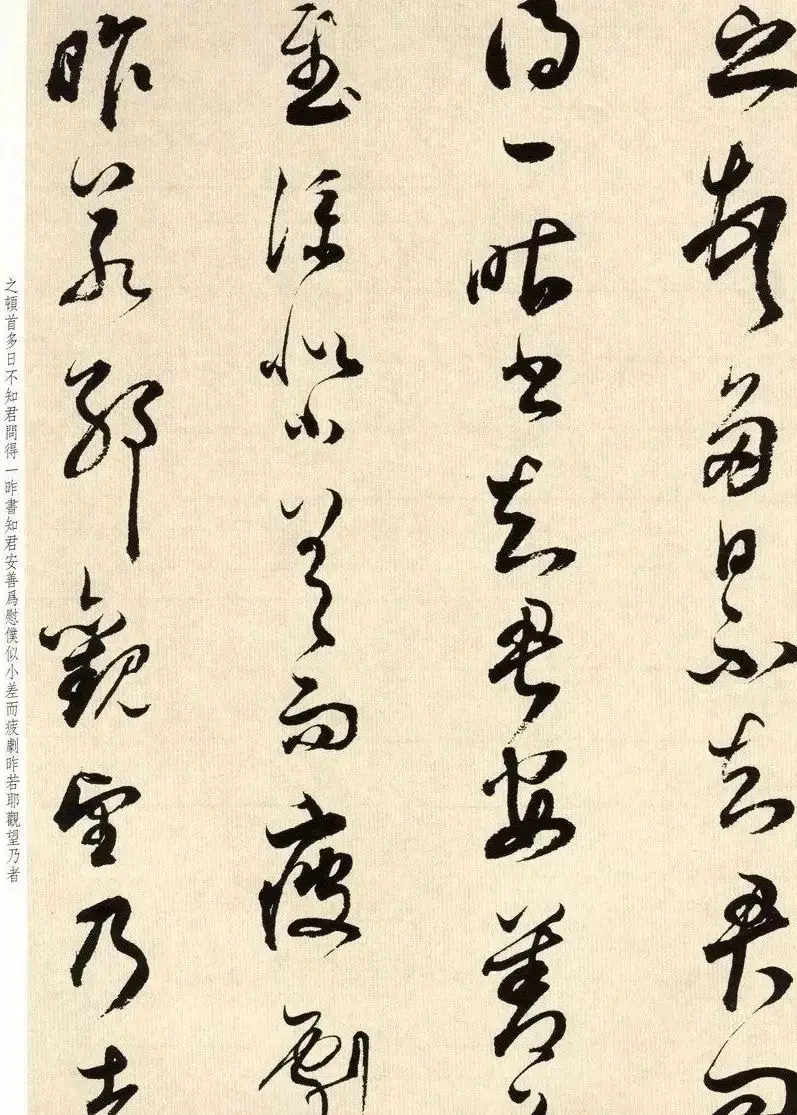 之頓首多日不知君問
得一昨書知君安善爲
慰僕似小差而疲劇
昨若耶觀望乃者
之頓首多日不知君問得一昨書知君安善爲慰僕似小差而疲劇昨若耶觀望乃者